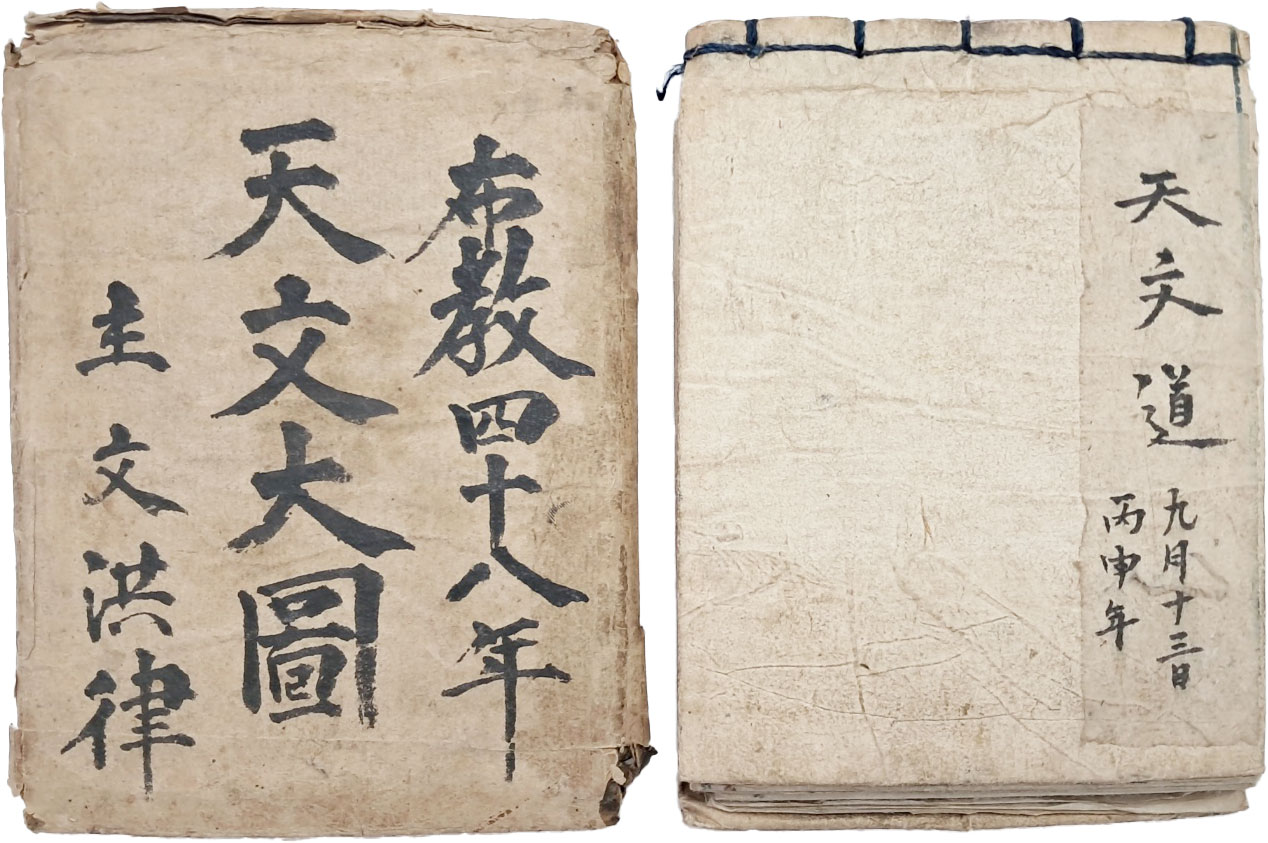 布教四十八年
天文大圖
主文洪律
天文道
九月十三日
丙申年